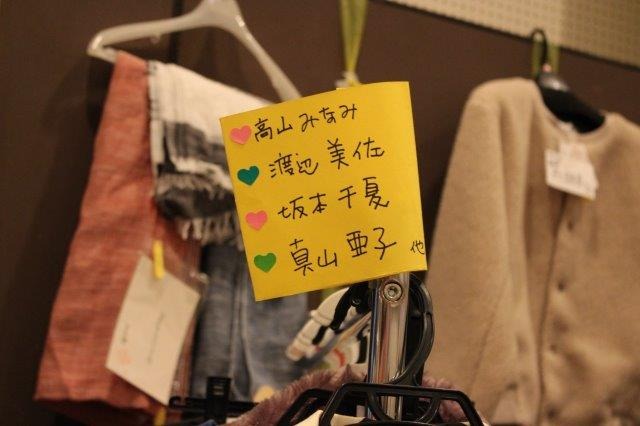 高山みなみ
渡辺美佐
坂本千夏
真山亜子 他